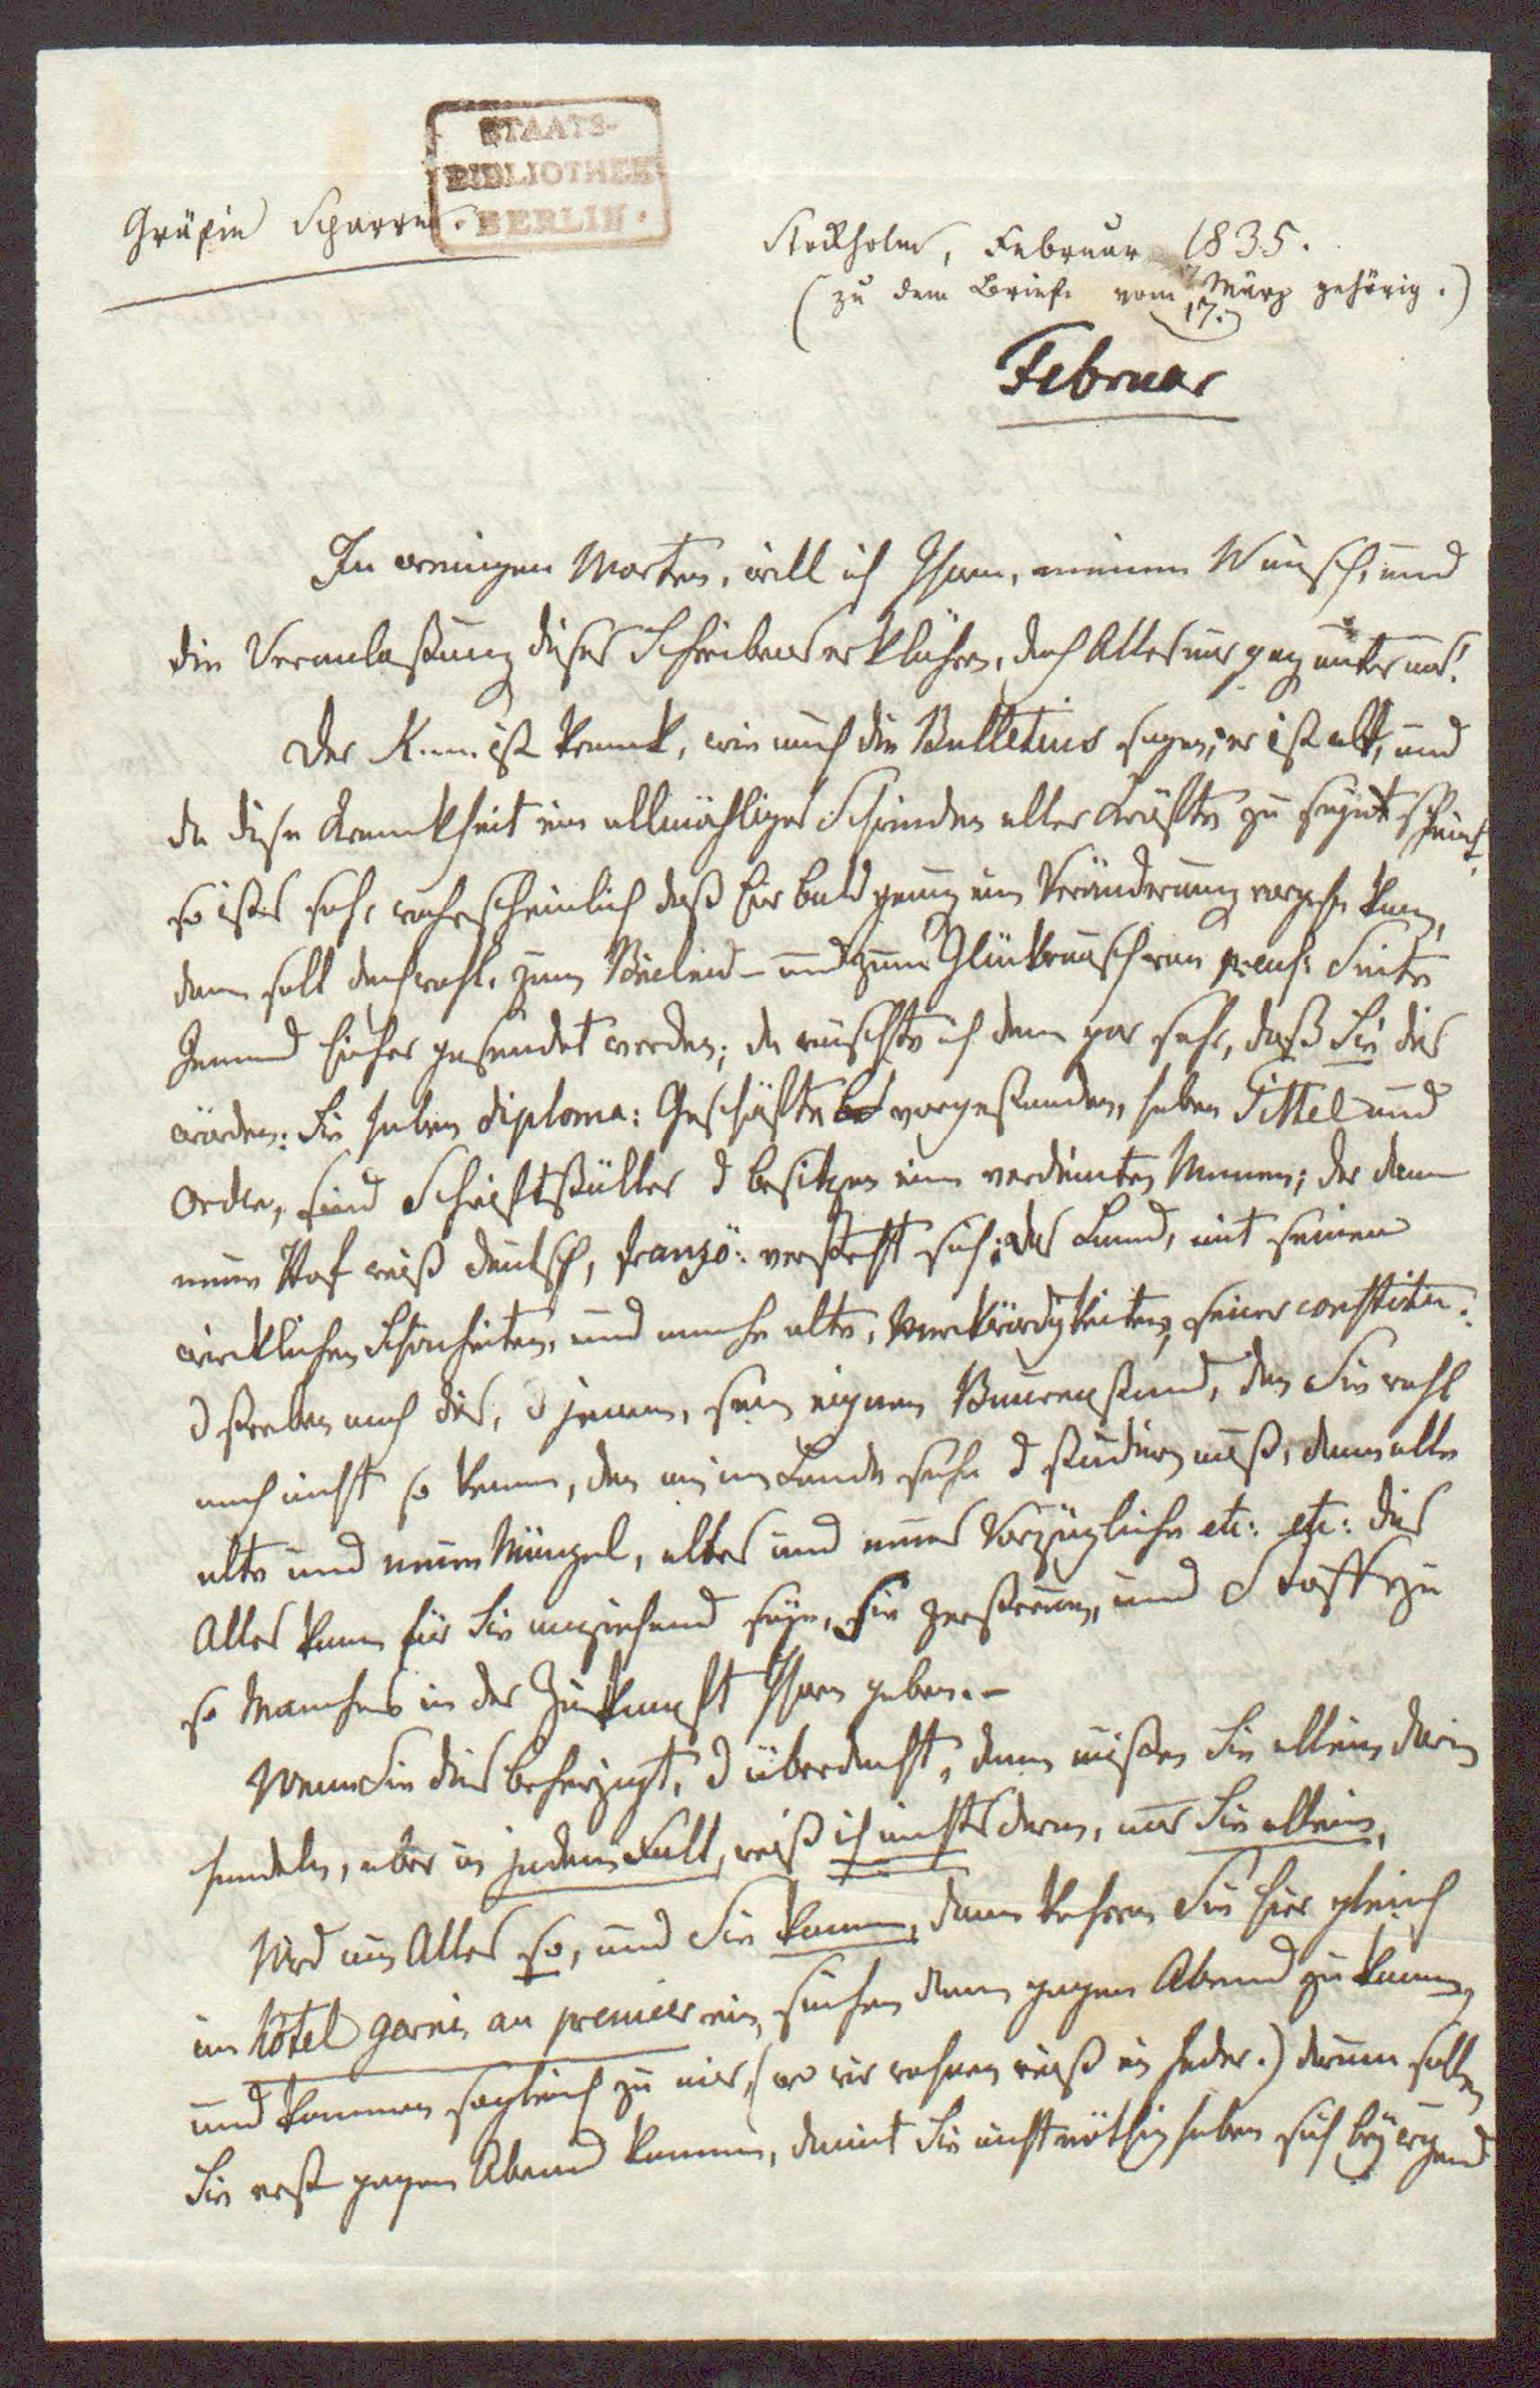 STAATS-
BIBLIOTHEK
BERLIN.
Gräfin Sparre.
Stockholm, Februar 1835.
(zu dem Briefe vom 17. März gehörig.)
Februar
In wenigen Worten, will ich Ihnen, meinen Wunsch, und
die Veranlaßung dieses Schreibens erklähren, doch Alles nur ganz unter uns!
Der K.... ist krank, wie auch die Bulletins sagen, er ist alt, und
da diese Krankheit ein allmähliges Schwinden aller Kräfte zu seyn scheint,
so ist es sehr wahrscheinlich daß hier bald genug eine Veränderung vorgehn kann,
dann soll doch wohl, zum Beileid - und zum Glückwunsch von preuß: Seite
Jemand hieher gesendet werden; da wünschte ich denn gar sehr, daß Sie dies
würden: Sie haben diploma: Geschäften vorgestanden, haben Tittel und
Orden, sind Schriftställer & besitzen einen verdienten Namen; der
neue Hof weiß deutsch, franzö: versteht sich; das Land, mit seinen
wircklichen Schönheiten, und manche alte, Merkwürdigkeiten, seiner constitu:
& streben nach dies, & jenem, sein eignen Bauernstand, den Sie wohl
noch nicht so kennen, den im Lande sehn & studiren muß, dann alle
alte und neuen Mängel, altes und neues Vorzügliche etc: etc: dies
Alles kann für Sie anziehend seyn, Sie zerstreuen, und Stoff zu
so Manches in der Zukunft Ihnen geben. -
Wenn Sie dies beherzigt, & überdacht, dann müßen Sie allein darin
handeln, aber in jedem Fall, weiß ich nichts davon, nur Sie allein,
Wird nun Alles so, und Sie kommen, dann kehren Sie hier gleich
im hôtel garni, au premier ein, suchen dann gegen Abend zu kommen,
und kommen sogleich zu mir, (wo wir wohnen weiß ein Jeder.) darum sollen
Sie erst gegen Abend kommen, damit Sie nicht nöthig haben sich bey irgend